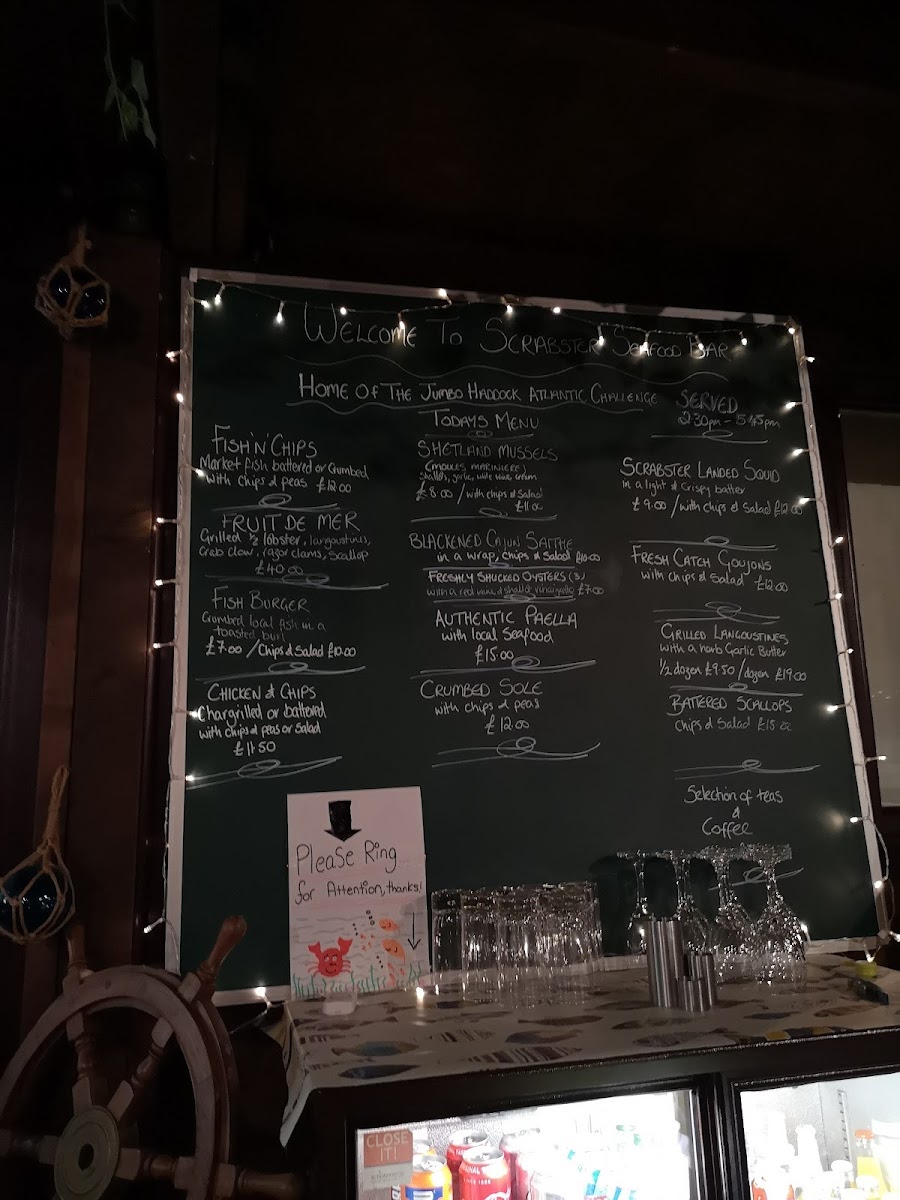 WELCOME TO SCRABSTER SEAFOOD BAR
HOME OF THE JUMBO HADDOCK ATLANTIC CHALLENGE
SERVED
2.30pm - 5.45pm
TODAYS MENU
FISH 'N' CHIPS
Market fish battered or Crumbed
with chips & peas £12.00
FRUIT DE MER
Grilled ½ lobster, langoustines,
Crab claw, razor clams, Scallop
£40.00
FISH BURGER
Crumbed local fish in a
toasted bun
£7.00 / Chips & Salad £10.00
CHICKEN & CHIPS
Chargrilled or battered
with chips & peas or Salad
£11.50
SHETLAND MUSSELS
(MOULES MARINIERE)
Shallots, garlic, white wine cream
£8.00 / with chips & Salad
£11.00
BLACKENED CAJUN
in a wrap, chips & Salad £10.00
FRESHLY SHUCKED OYSTERS (3)
with a red wine & shallot £7.00
AUTHENTIC PAELLA
with local Seafood
£15.00
CRUMBED SOLE
with chips & peas
£12.00
SCRABSTER LANDED SQUID
in a light & Crispy batter
£9.00 / with chips & Salad £12.00
FRESH CATCH GOUJONS
with chips & Salad £12.00
GRILLED LANGOUSTINES
with a harb Garlic Butter
½ dozen £9.50 / dozen £19.00
BATTERED SCALLOPS
Chips & Salad £15.00
Selection of teas
&
Coffee
Please Ring
for Attention, thanks!
CLOSE
IT!